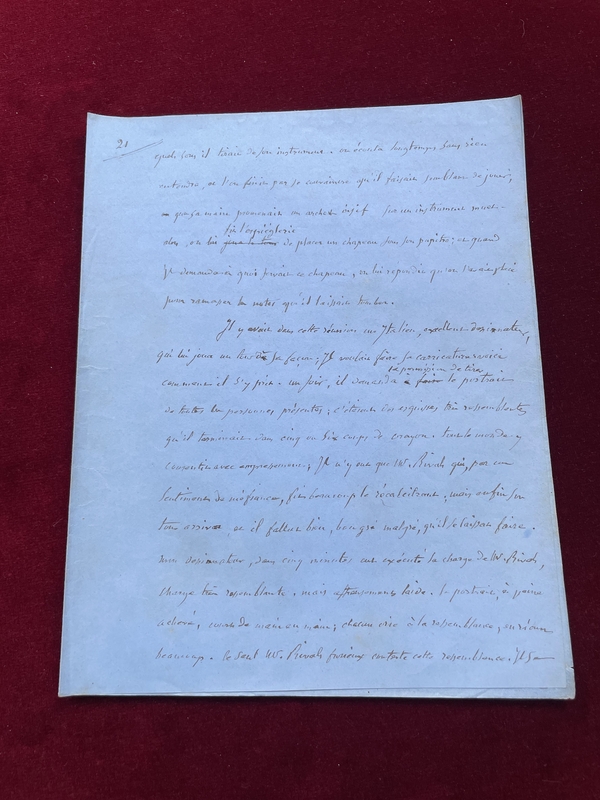 21
quels sons il tirait de son instrument. on écouta longtemps sans rien
entendre, et l'on finit par se convaincre qu'il faisait semblant de jouer,
et que sa main promenait un archet sur un instrument muet.
fit l'espièglerie
alors, on lui de placer un chapeau sous son pupitre; et quand
Il demanda à quoi servait ce chapeau, on lui répondit qu'on l'avait placé
pour ramasser les notes qu'il laissait tomber.
Il y avait dans cette réunion un Italien, excellent dessinateur,
qui lui joua un tour de sa façon; Il voulait faire sa carricature voici
la permission de tirer
comment il s'y prit. un soir, il demanda à faire le portrait
de toutes les personnes présentes; c'étaient des esquisses très ressemblantes
qu'il terminait dans cinq ou six coups de crayon. tout le monde y
consentit avec empressement; Il n'y eut que Mr. Rivals qui, par un
sentiment de méfiance, fit beaucoup le récalcitrant. mais enfin son
tour arriva, et il fallut bien, bon gré malgré, qu'il se laissât faire.
mon dessinateur, dans cinq minutes eut exécuté la charge de Mr. Rivals,
charge très ressemblante, mais affreusement laide. le portrait, à peine
achevé, courut de main en main; chacun cria à la ressemblance, on rit
beaucoup. le seul Mr. Rivals furieux contesta cette ressemblance. Il se